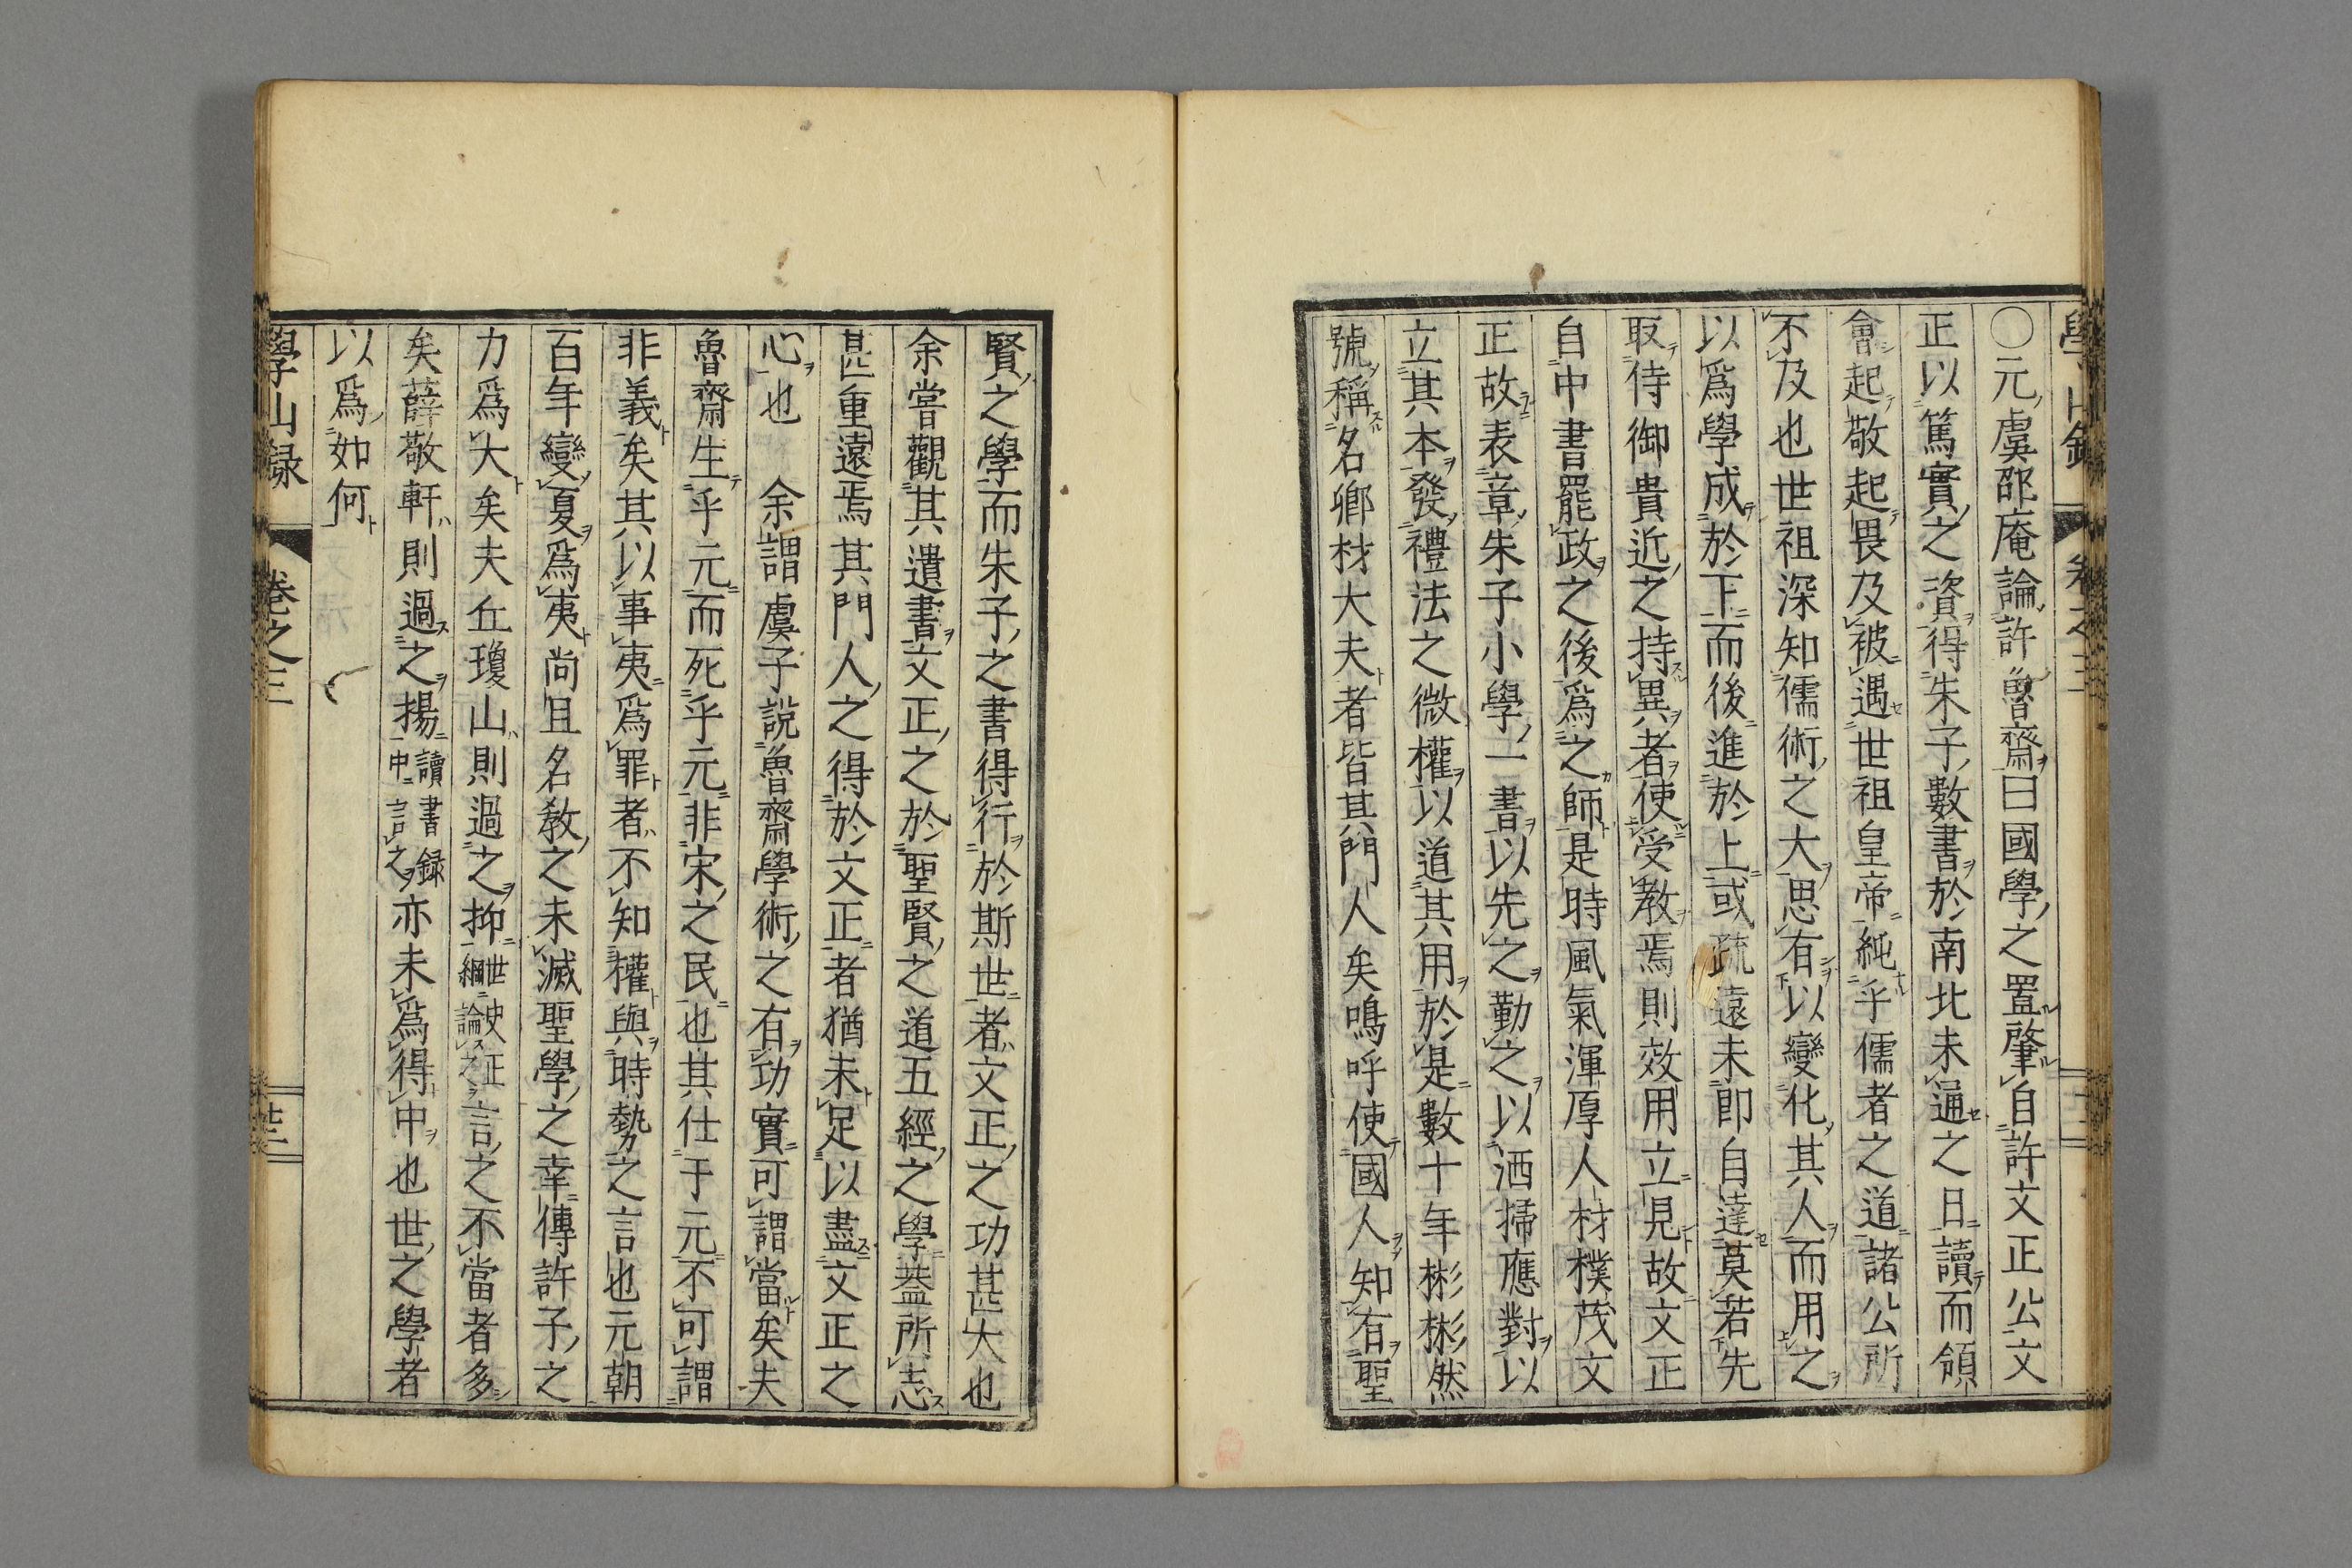 〇元虞邵庵論許魯齋曰國學之置肇自許文正公文
正以篤實之資得朱子數書於南北未通之日讀而領
會起敬起畏及被遇世祖皇帝純乎儒者之道諸公所
不及也世祖深知儒術之大思有以變化其人而用之
以爲學成於下而後進於上或疏遠未卽自達莫若先
取侍御貴近之持異者使受教焉則效用立見故文正
自中書罷政之後爲之師是時風氣渾厚人材樸茂文
正故表章朱子小學一書以先之勤之以洒掃應對以
立其本發禮法之微權以道其用於是數十年彬彬然
號稱名卿材大夫者皆其門人矣鳴呼使國人知有聖
賢之學而朱子之書得行於斯世者文正之功甚大也
余嘗觀其遺書文正之於聖賢之道五經之學葢所志
甚重遠焉其門人之得於文正者猶未足以盡文正之
心也　余謂虞子說魯齋學術之有功實可謂當矣夫
魯齋生乎元而死乎元非宋之民也其仕于元不可謂
非義矣其以事夷爲罪者不知權與時勢之言也元朝
百年變夏爲夷尚且名教之未滅聖學之幸傳許子之
力爲大矣夫丘瓊山則過之抑世史正綱論之言之不當者多
矣薛敬軒則過之揚讀書録中言之亦未爲得中也世之學者
以爲如何
學山録　卷之三